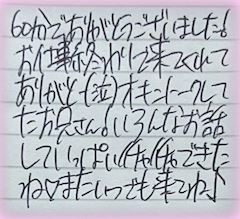 60分でありがとうございました！
お仕事終わりで来てくれて
ありがとー(泣)オキニトークして
たお兄さん！いろんなお話
していっぱいイチャイチャできた
ね♡またいつでも来てね♪